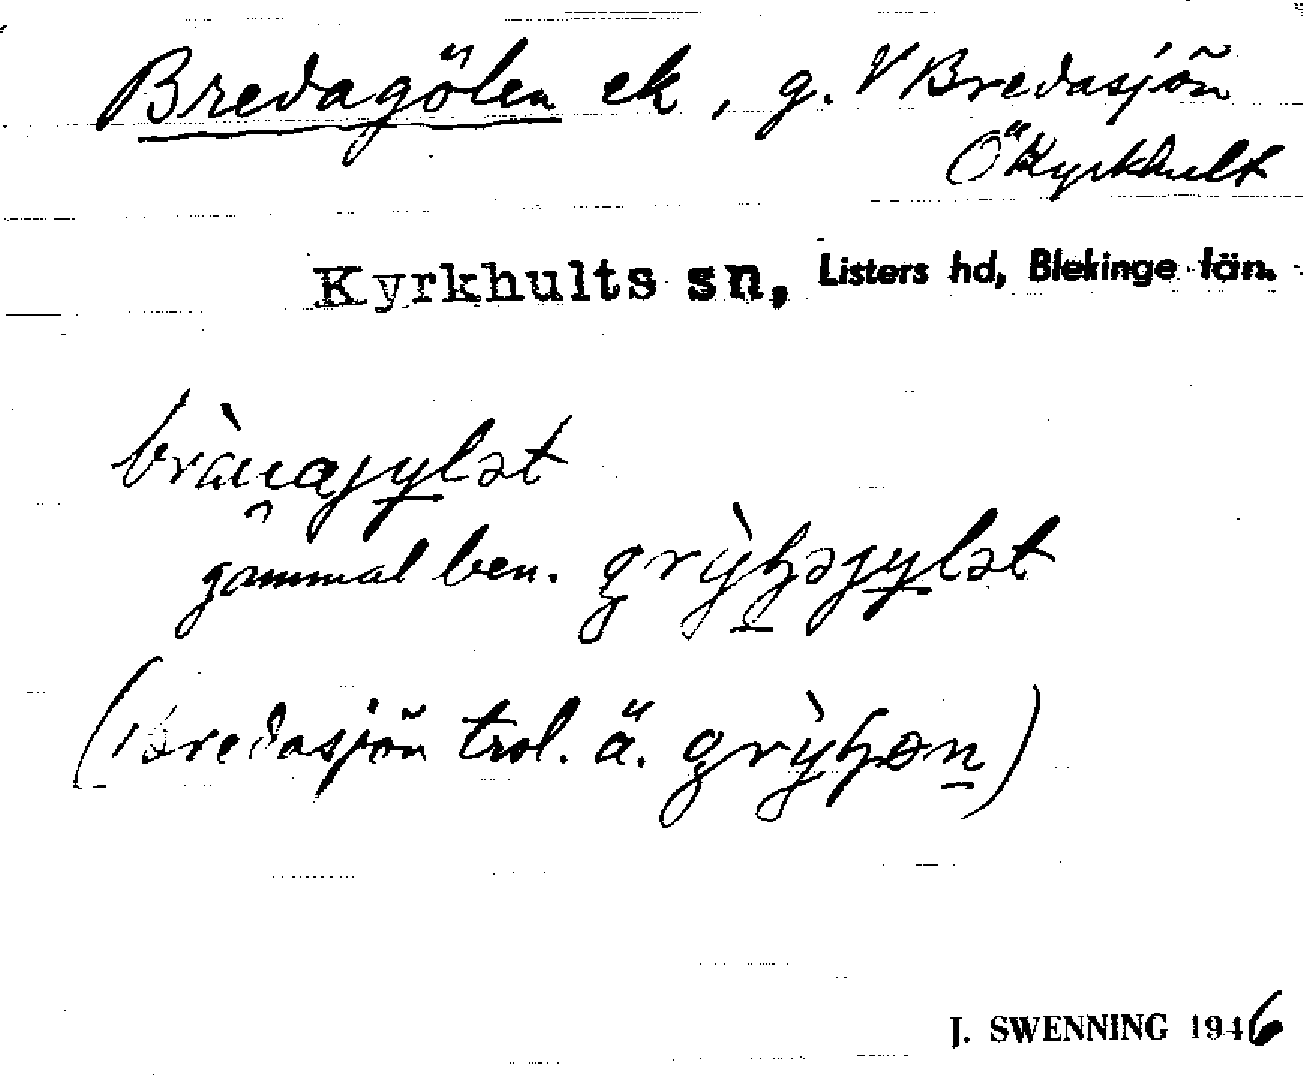 Bredagölen ek, g. V Bredasjön
Ö Kyrkhult
Kyrkhults sn, Listers hd, Blekinge län.
gammal ben.
(Bredasjön trol. ä.
J. SWENNING 1946